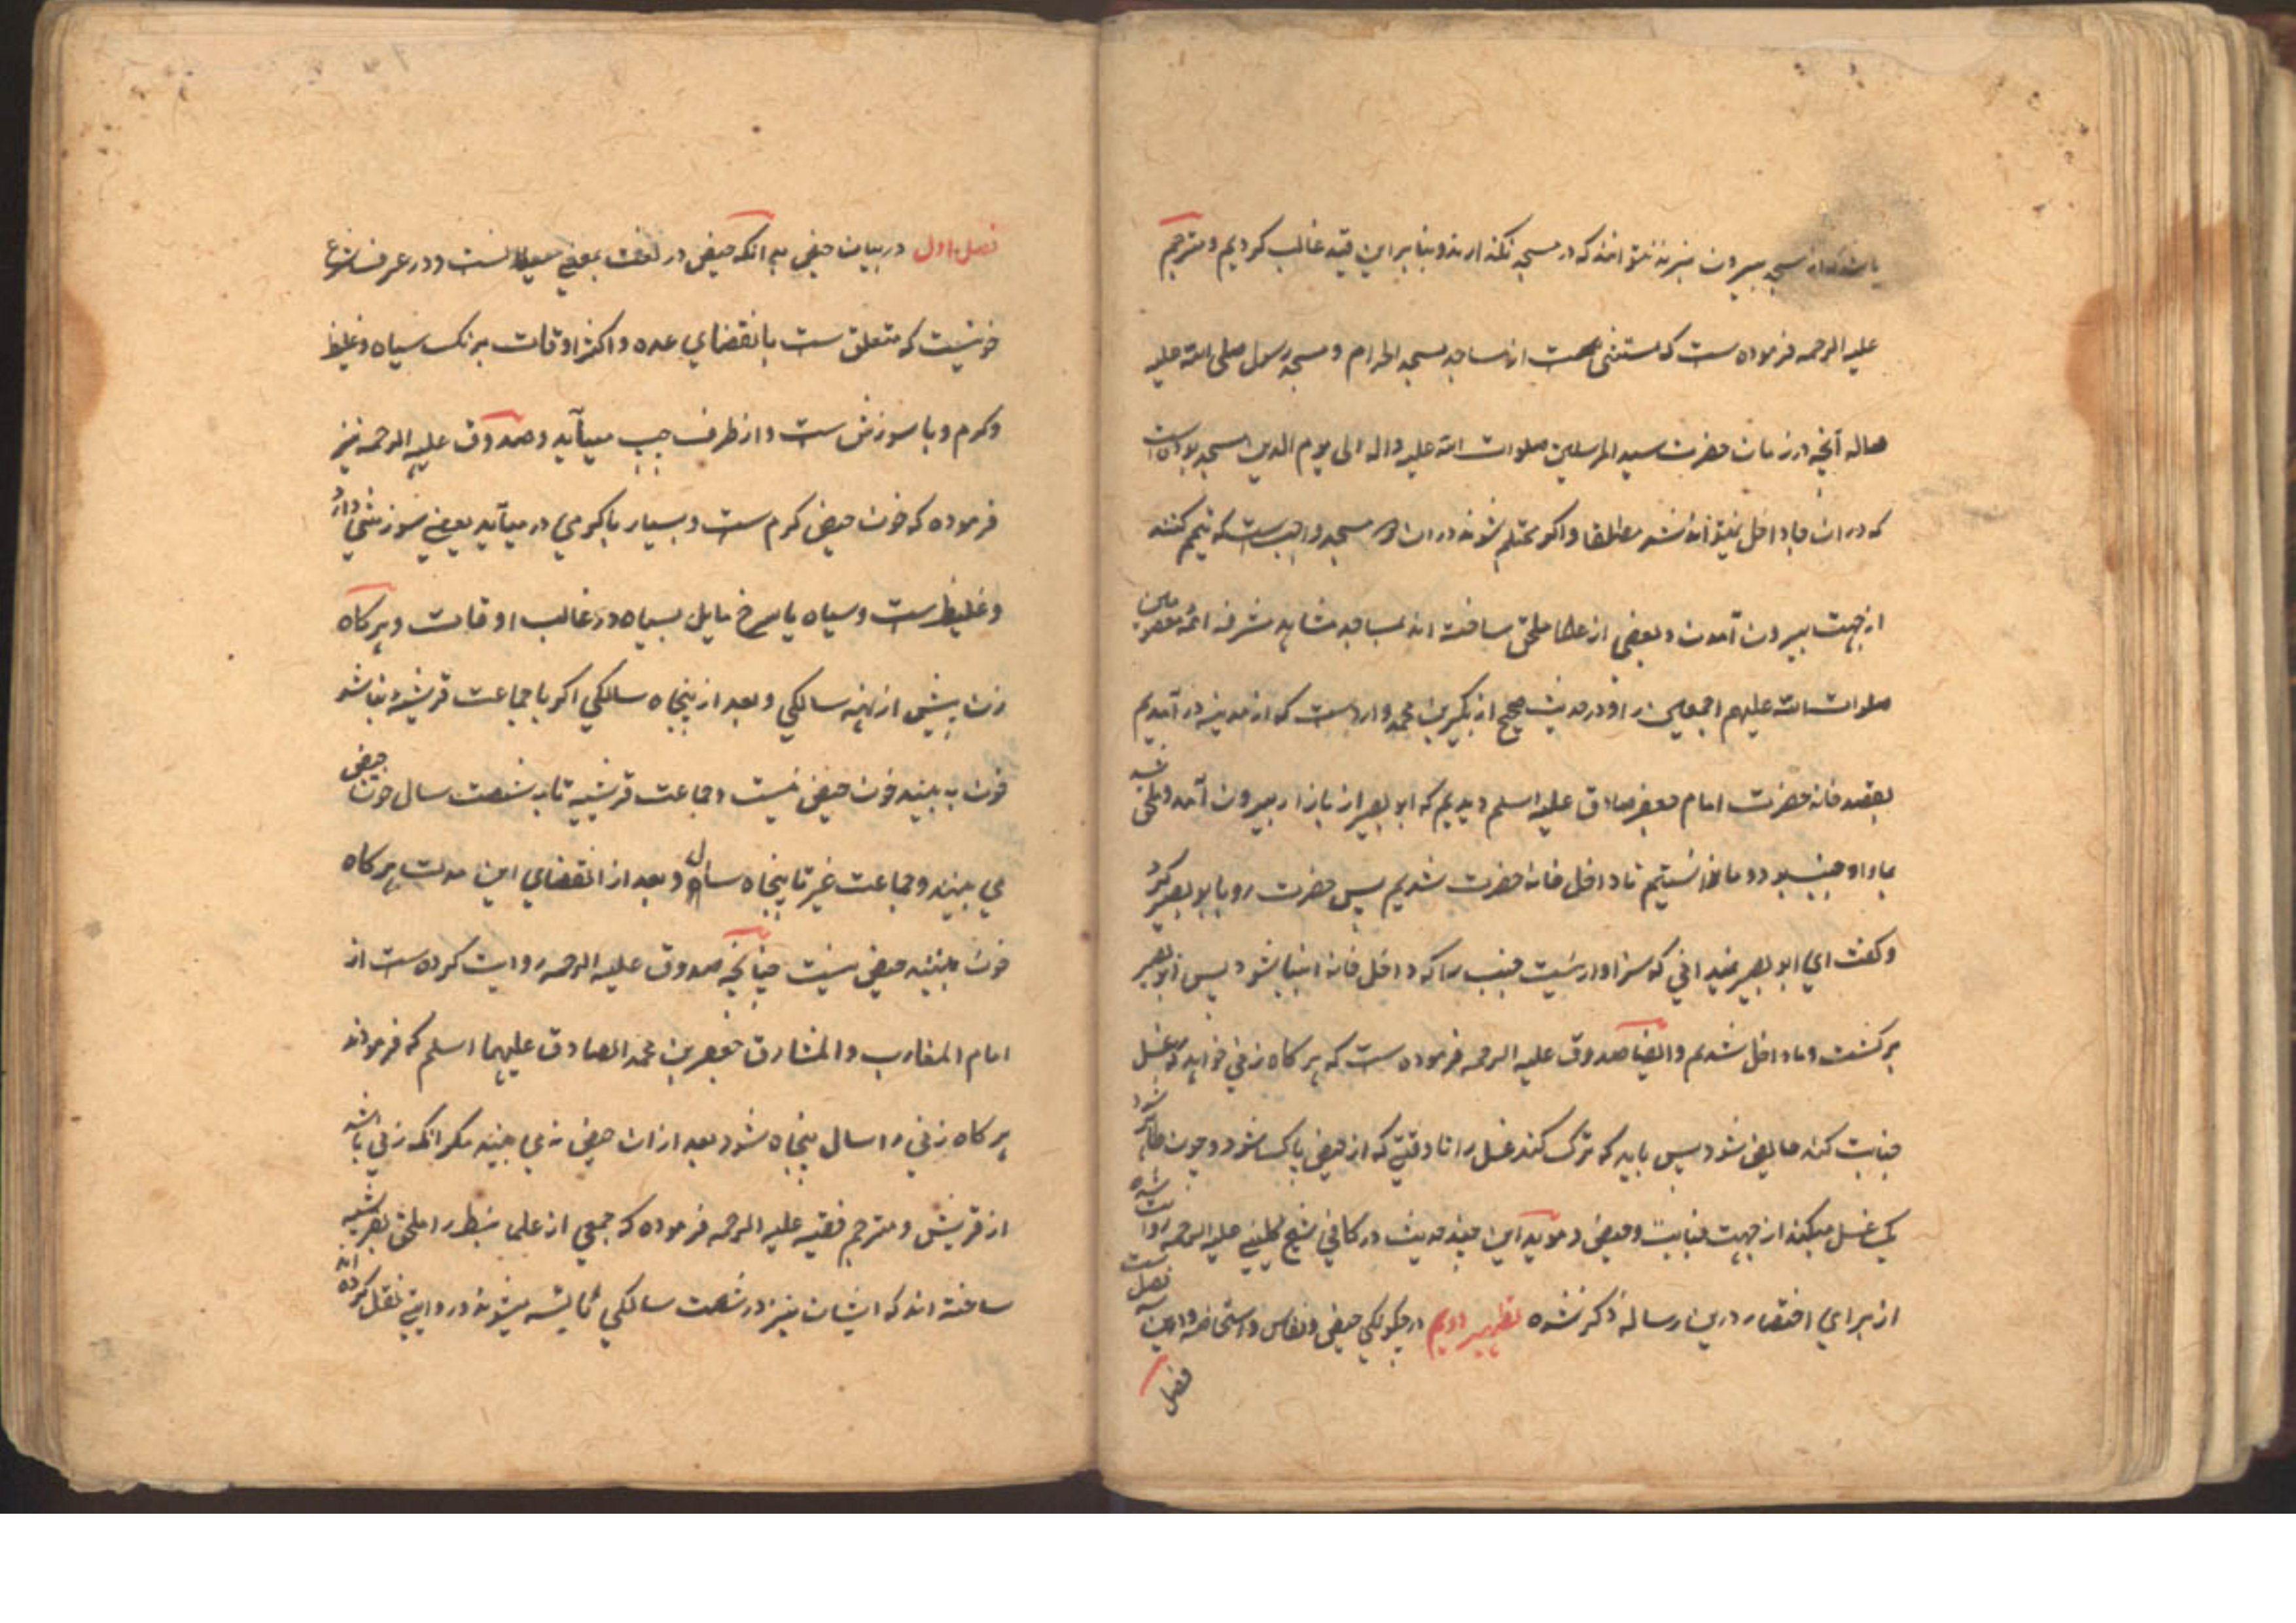 باشد که از مسجد بیرون میبرند نتوانند که در مسجد نکند ارند و بنابراین قید غالب کردیم و مترجم
علیه الرحمه فرموده ست که مستثنی است از مساجد مسجد الحرام و مسجد رسول صلی الله علیه
واله آنچه در زمان حضرت سید المرسلین صلوات الله علیه واله الی یوم الدین مسجد بوده است
که در ان جا داخل نمیتوانند شد مطلقا و اکر محتلم شوند در ان دو مسجد واجب ست که تیمم کنند
از جهت بیرون آمدن و بعضی از علما ملحق ساخته اند بمساجد مشاهد مشرفه ائمه معصومین
صلوات الله علیهم اجمعین را و در حدیث صحیح از بکیر بن محمد وارد ست که از مدینه در آمدیم
بقصد خانه حضرت امام جعفر صادق علیه اسلم دیدیم که ابو بصیر از بازار بیرون آمد و ملحق شد
بما و او جنب بود و ما ندانستیم تا داخل خانه حضرت شدیم پس حضرت رو بابو بصیر کرد
و کفت ای ابو بصیر نمیدانی که سزاوار نیست جنب را که داخل خانه انبیا شود پس ابو بصیر
برکشت و ما داخل شدیم و ایضا صدوق علیه الرحمه فرموده ست که هر کاه زنی خواهد که غسل
جنابت کند حایض شود پس باید که ترک کند غسل را تا وقتی که از حیض پاک شود و چون طاهر شود
یک غسل میکند از جهت جنابت و حیض و موید این چند حدیث در کافی شیخ کلینی علیه الرحمه روایت شده
از برای اختصار درین رساله ذکر نشده تطهیر دویم در چکونکی حیض و نفاس و استحاضه و درین سه فصل ست
فصل
فصل اول در بیان حیض بدانکه حیض در لغت بمعنی سیلانست و در عرف شرع
خونیست که متعلق ست بانقضای عده و اکثر اوقات برنک سیاه و غلیظ
و کرم و با سوزش ست و از طرف چپ میآید و صدوق علیه الرحمه نیز
فرموده که خون حیض کرم ست و بسیار باکرمی در میآید یعنی سوزشی دارد
و غلیظ ست و سیاه یا سرخ مایل بسیاه در غالب اوقات و هر کاه
زن پیش از نه سالکی و بعد از پنجاه سالکی اکر با جماعت قرشیه نباشد
خون به بیند خون حیض نیست و جماعت قرشیه تا به شصت سال خون حیض
می بینند و جماعت غیر تا پنجاه سال و بعد از انقضای این مدت هر کاه
خون بینند حیض نیست چنانچه صدوق علیه الرحمه روایت کرده ست از
امام المغارب و المشارق جعفر بن محمد الصادق علیهما اسلم که فرمودند
هر کاه زنی را سال پنجاه شود بعد از ان حیض نمی بیند مکر انکه زنی باشد
از قریش و مترجم فقیه علیه الرحمه فرموده که جمعی از علما نبطیه را ملحق بقرشیه
ساخته اند که ایشان نیز در شصت سالکی یائسه میشوند و روایتی نقل کرده اند